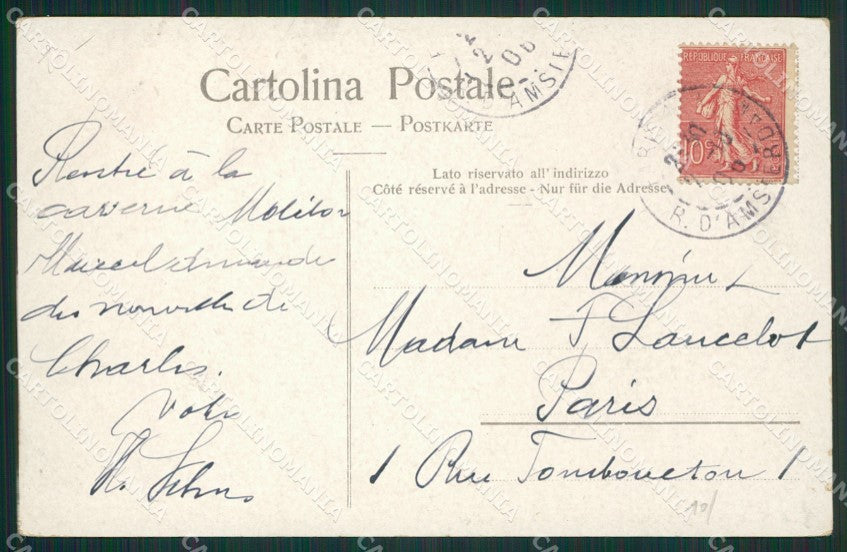 Cartolina Postale
CARTE POSTALE — POSTKARTE
Lato riservato all' indirizzo
Côté réservé à l'adresse - Nur für die Adresse
REPUBLIQUE FRANÇAISE
10c
R. D'AMSTERDAM
Rentré à la
caserne Molitor
Marcel demande
des nouvelles de
Charles.
Votre
Monsieur &
Madame F Lancelot
Paris
1 Rue Tombouctou 1
CARTOLINOMANIA